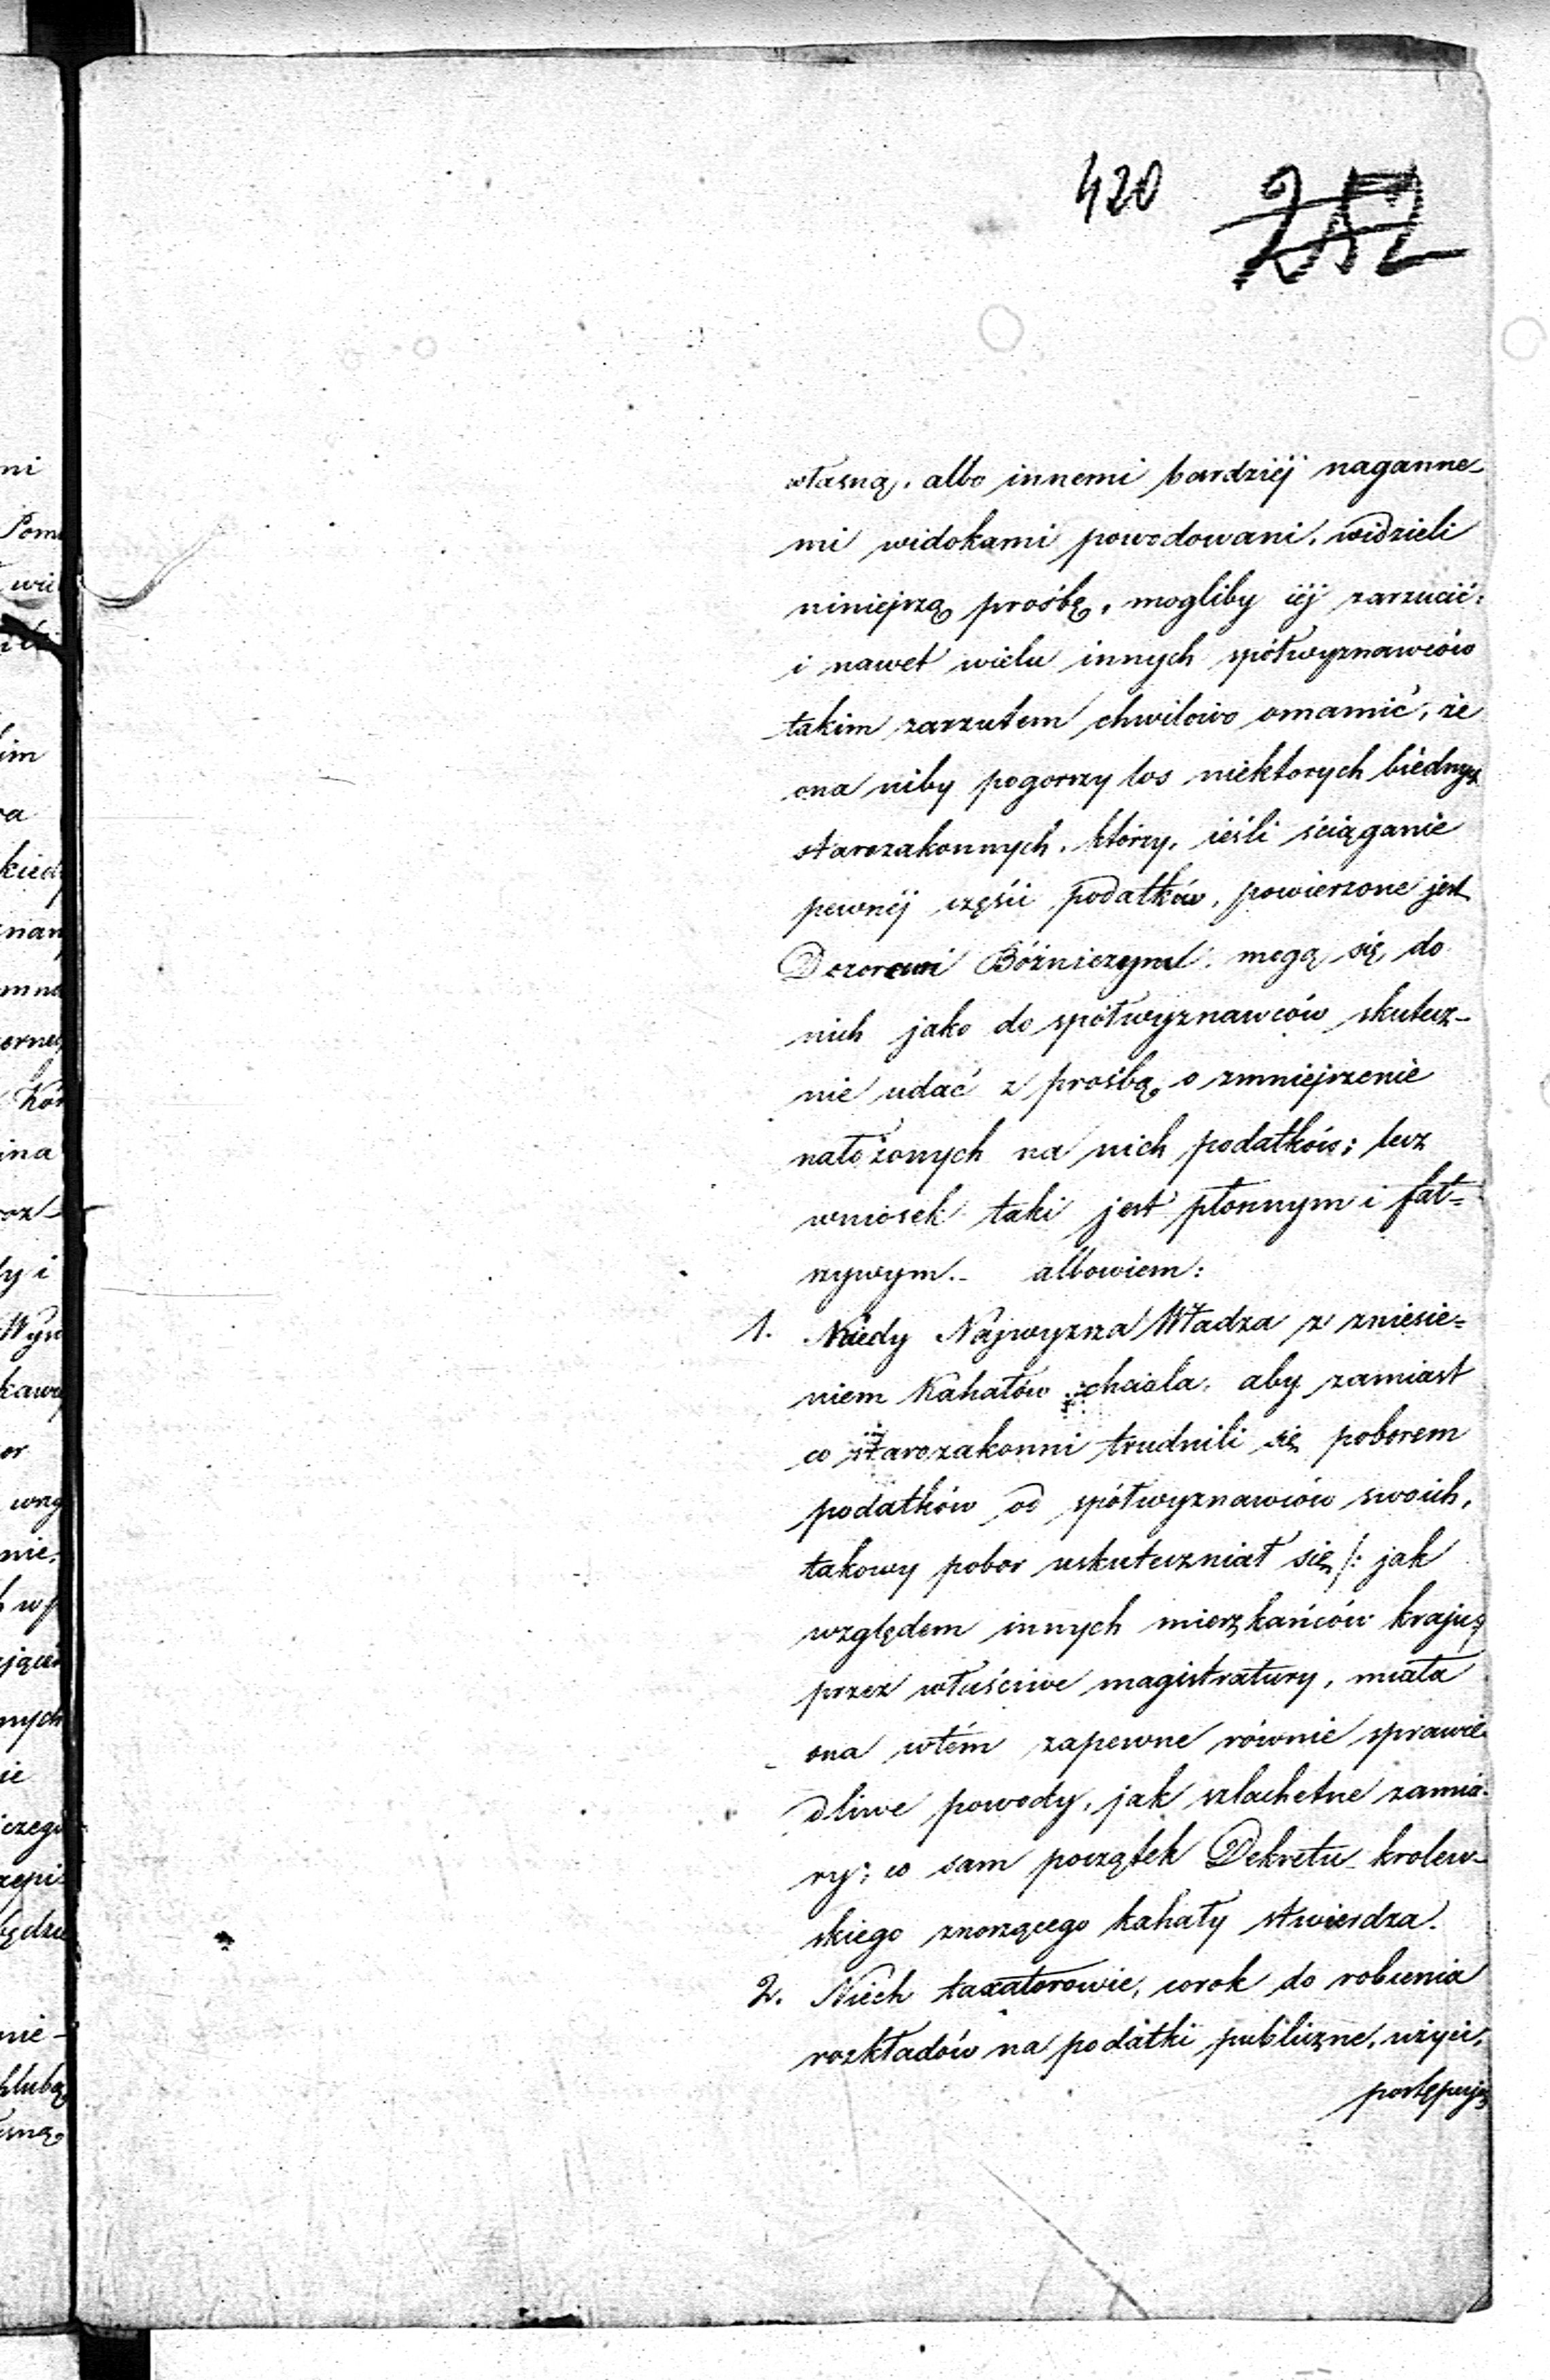 420 252
własną, albo innemi bardziéj naganne-
mi widokami powodowani, widzieli
niniejszą prośbę, mogliby iéj zarzucić,
i nawet wielu innych spółwyznawców
takim zarzutem chwilowo omamić, że
ona niby pogorszy los niektorych biednych
starozakonnych, którzy, ieśli ściąganie
pewnéj części podatków, powierzone jest
Dozorowi Bóżniczymu, mogą się do
nich jako do spółwyznawców skutecz-
nie udać z prośbą o zmniejszenie
nałożonych na nich podatków; lecz
wniosek taki jest płonnym i fał=
szywym.- albowiem:
1. Kiedy Najwyższa Władza z zniesie=
niem Kahałów chciała, aby zamiast
co starozakonni trudnili się poborem
podatków od spółwyznawców swoich,
takowy pobor uskuteczniał się /: jak
względem innych mieszkańców kraju :/
przez właściwe magistratury, miała
ona wtém zapewne równie sprawie-
dliwe powody, jak szlachetne zamia-
ry; co sam początek Dekretu krolew-
skiego znoszącego kahały stwierdza.
2. Niech taxatorowie, corok do robienia
rozkładów na podatki publiczne, użyci,
postępują
ni
Pom
wie
im
a
kied
nan
mna
ornej
Kór
ina
oz-
y i
Wyn
kawe
or
wzg
nie,
h wp
jącé
nych
ie
czego
zepi-
będzie
nie-
hlubą
sną,